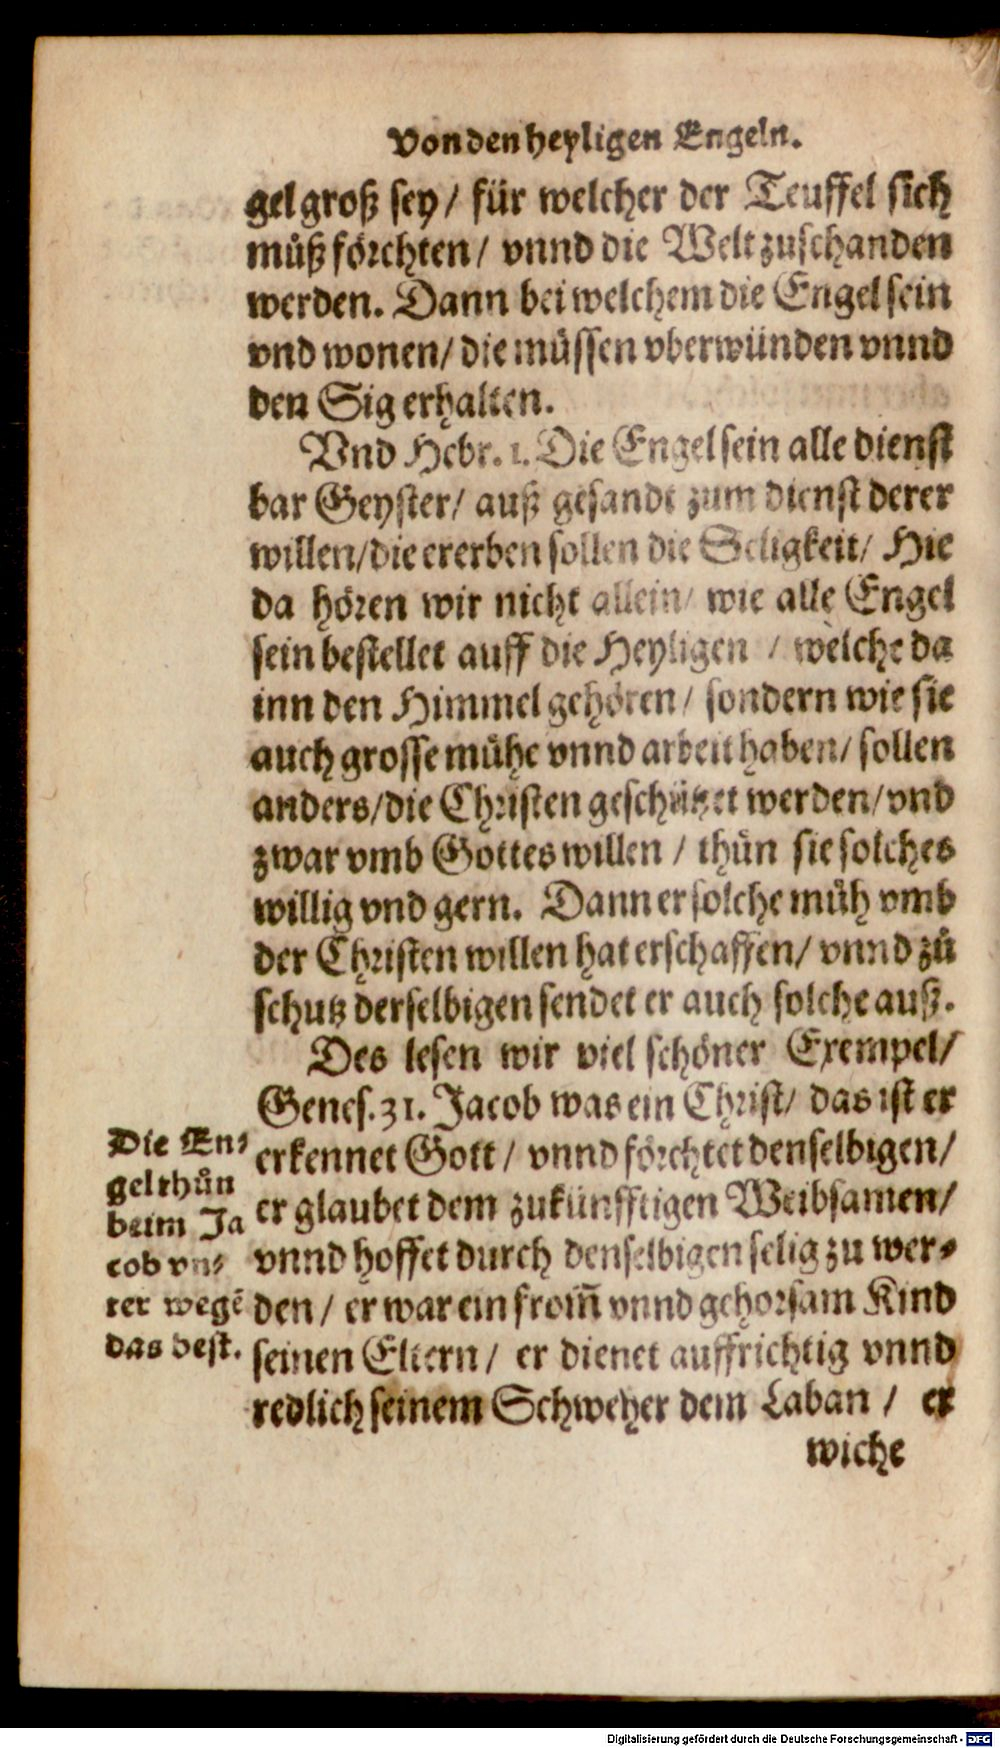 Von den heyligen Engeln.
gel groß sey / für welcher der Teuffel sich
můß förchten / vnnd die Welt zuschanden
werden. Dann bei welchem die Engel sein
vnd wonen / die müssen vberwünden vnnd
den Sig erhalten.
Vnd Hebr. 1. Die Engel sein alle dienst
bar Geyster / auß gesandt zum dienst derer
willen / die ererben sollen die Seligkeit / Hie
da hören wir nicht allein / wie alle Engel
sein bestellet auff die Heyligen / welche da
inn den Himmel gehören / sondern wie sie
auch grosse mühe vnnd arbeit haben / sollen
anders / die Christen geschützet werden / vnd
zwar vmb Gottes willen / thün sie solches
willig vnd gern. Dann er solche müh vmb
der Christen willen hat erschaffen / vnnd zů
schutz derselbigen sendet er auch solche auß.
Des lesen wir viel schöner Exempel /
Genes. 31. Jacob was ein Christ / das ist er
erkennet Gott / vnnd förchtet denselbigen /
er glaubet dem zukünfftigen Weibsamen /
vnnd hoffet durch denselbigen selig zu wer⸗
den / er war ein from̃ vnnd gehorsam Kind
seinen Eltern / er dienet auffrichtig vnnd
redlich seinem Schweher dem Laban / er
wiche
Die En⸗
gel thůn
beim Ja
cob vn⸗
ter wegẽ
das best.
Digitalisierung gefördert durch die Deutsche Forschungsgemeinschaft - DFG